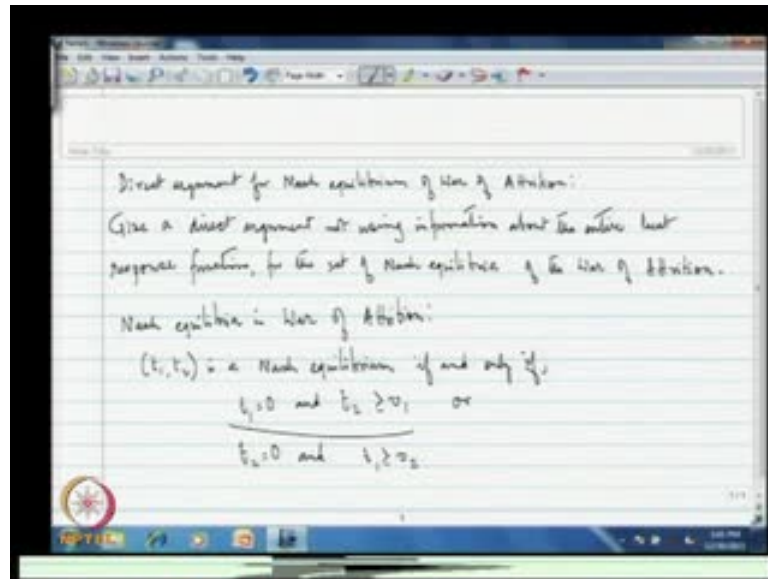 Direct argument for Nash equilibrium of War of Attrition:
Give a direct argument not using information about the entire best
response function, for the set of Nash equilibria of the War of Attrition.
Nash equilibria in War of Attrition:
(t₁,t₂) is a Nash equilibrium if and only if,
t₁=0 and t₂ ≥ v₁ or
t₂=0 and t₁ ≥ v₂
NPTEL